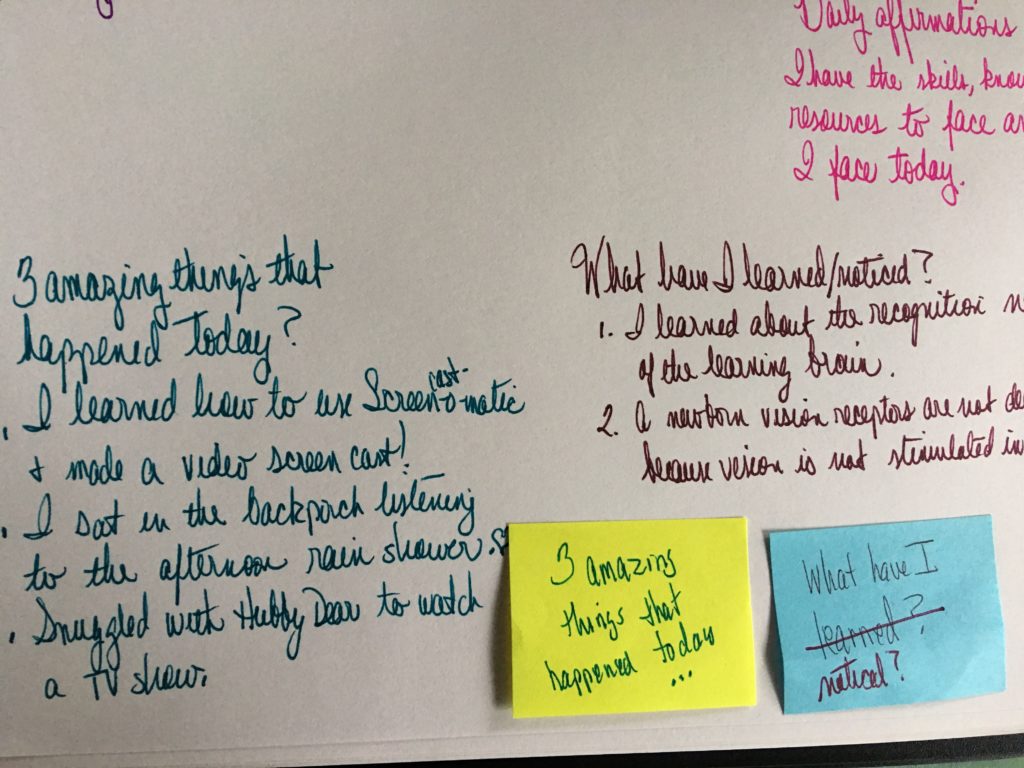 Daily affirmations
I have the skills,
resources to face
I face today.
3 amazing things that
happened today?
. I learned how to use Screen-cast-o-matic
+ made a video screen cast!
. I sat in the backporch listening
to the afternoon rain shower.
. Snuggled with Hubby Dear to watch
a TV show.
What have I learned/noticed?
1. I learned about the recognition
of the learning brain.
2. A newborn vision receptors are not
because vision is not stimulated
3 amazing
things that
happened today
...
What have I
learned?
noticed?